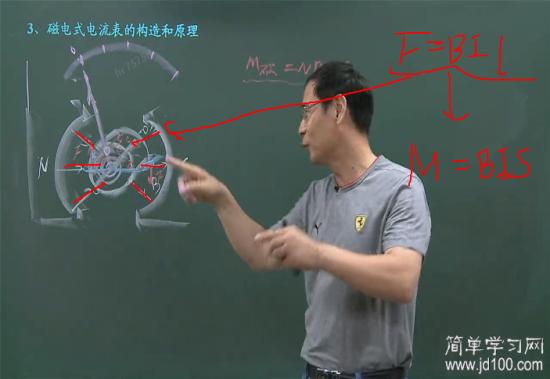 3、磁电式电流表的构造和原理
F=BIL
M磁=N
M=BIS
N
简单学习网
www.jd100.com